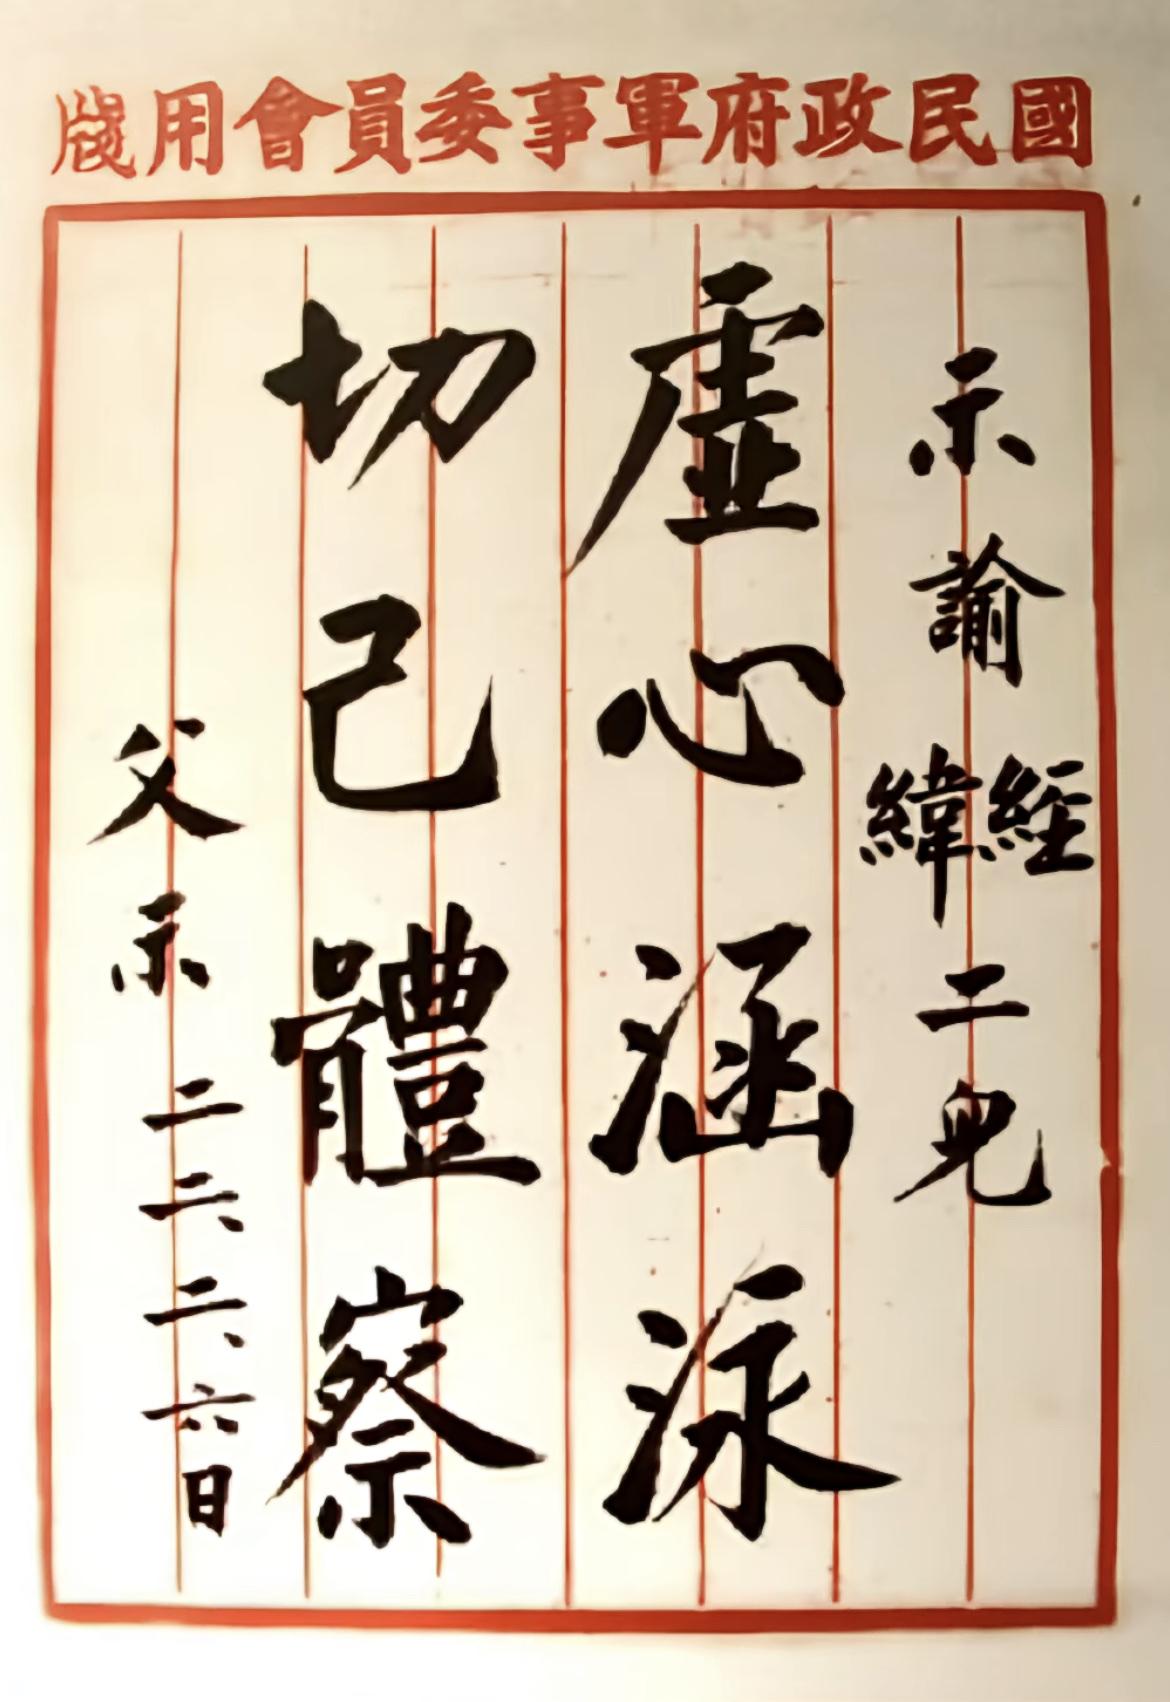 國民政府軍事委員會用牋
示諭經緯二兒
虚心涵泳
切己體察
父示 二二、二、六日